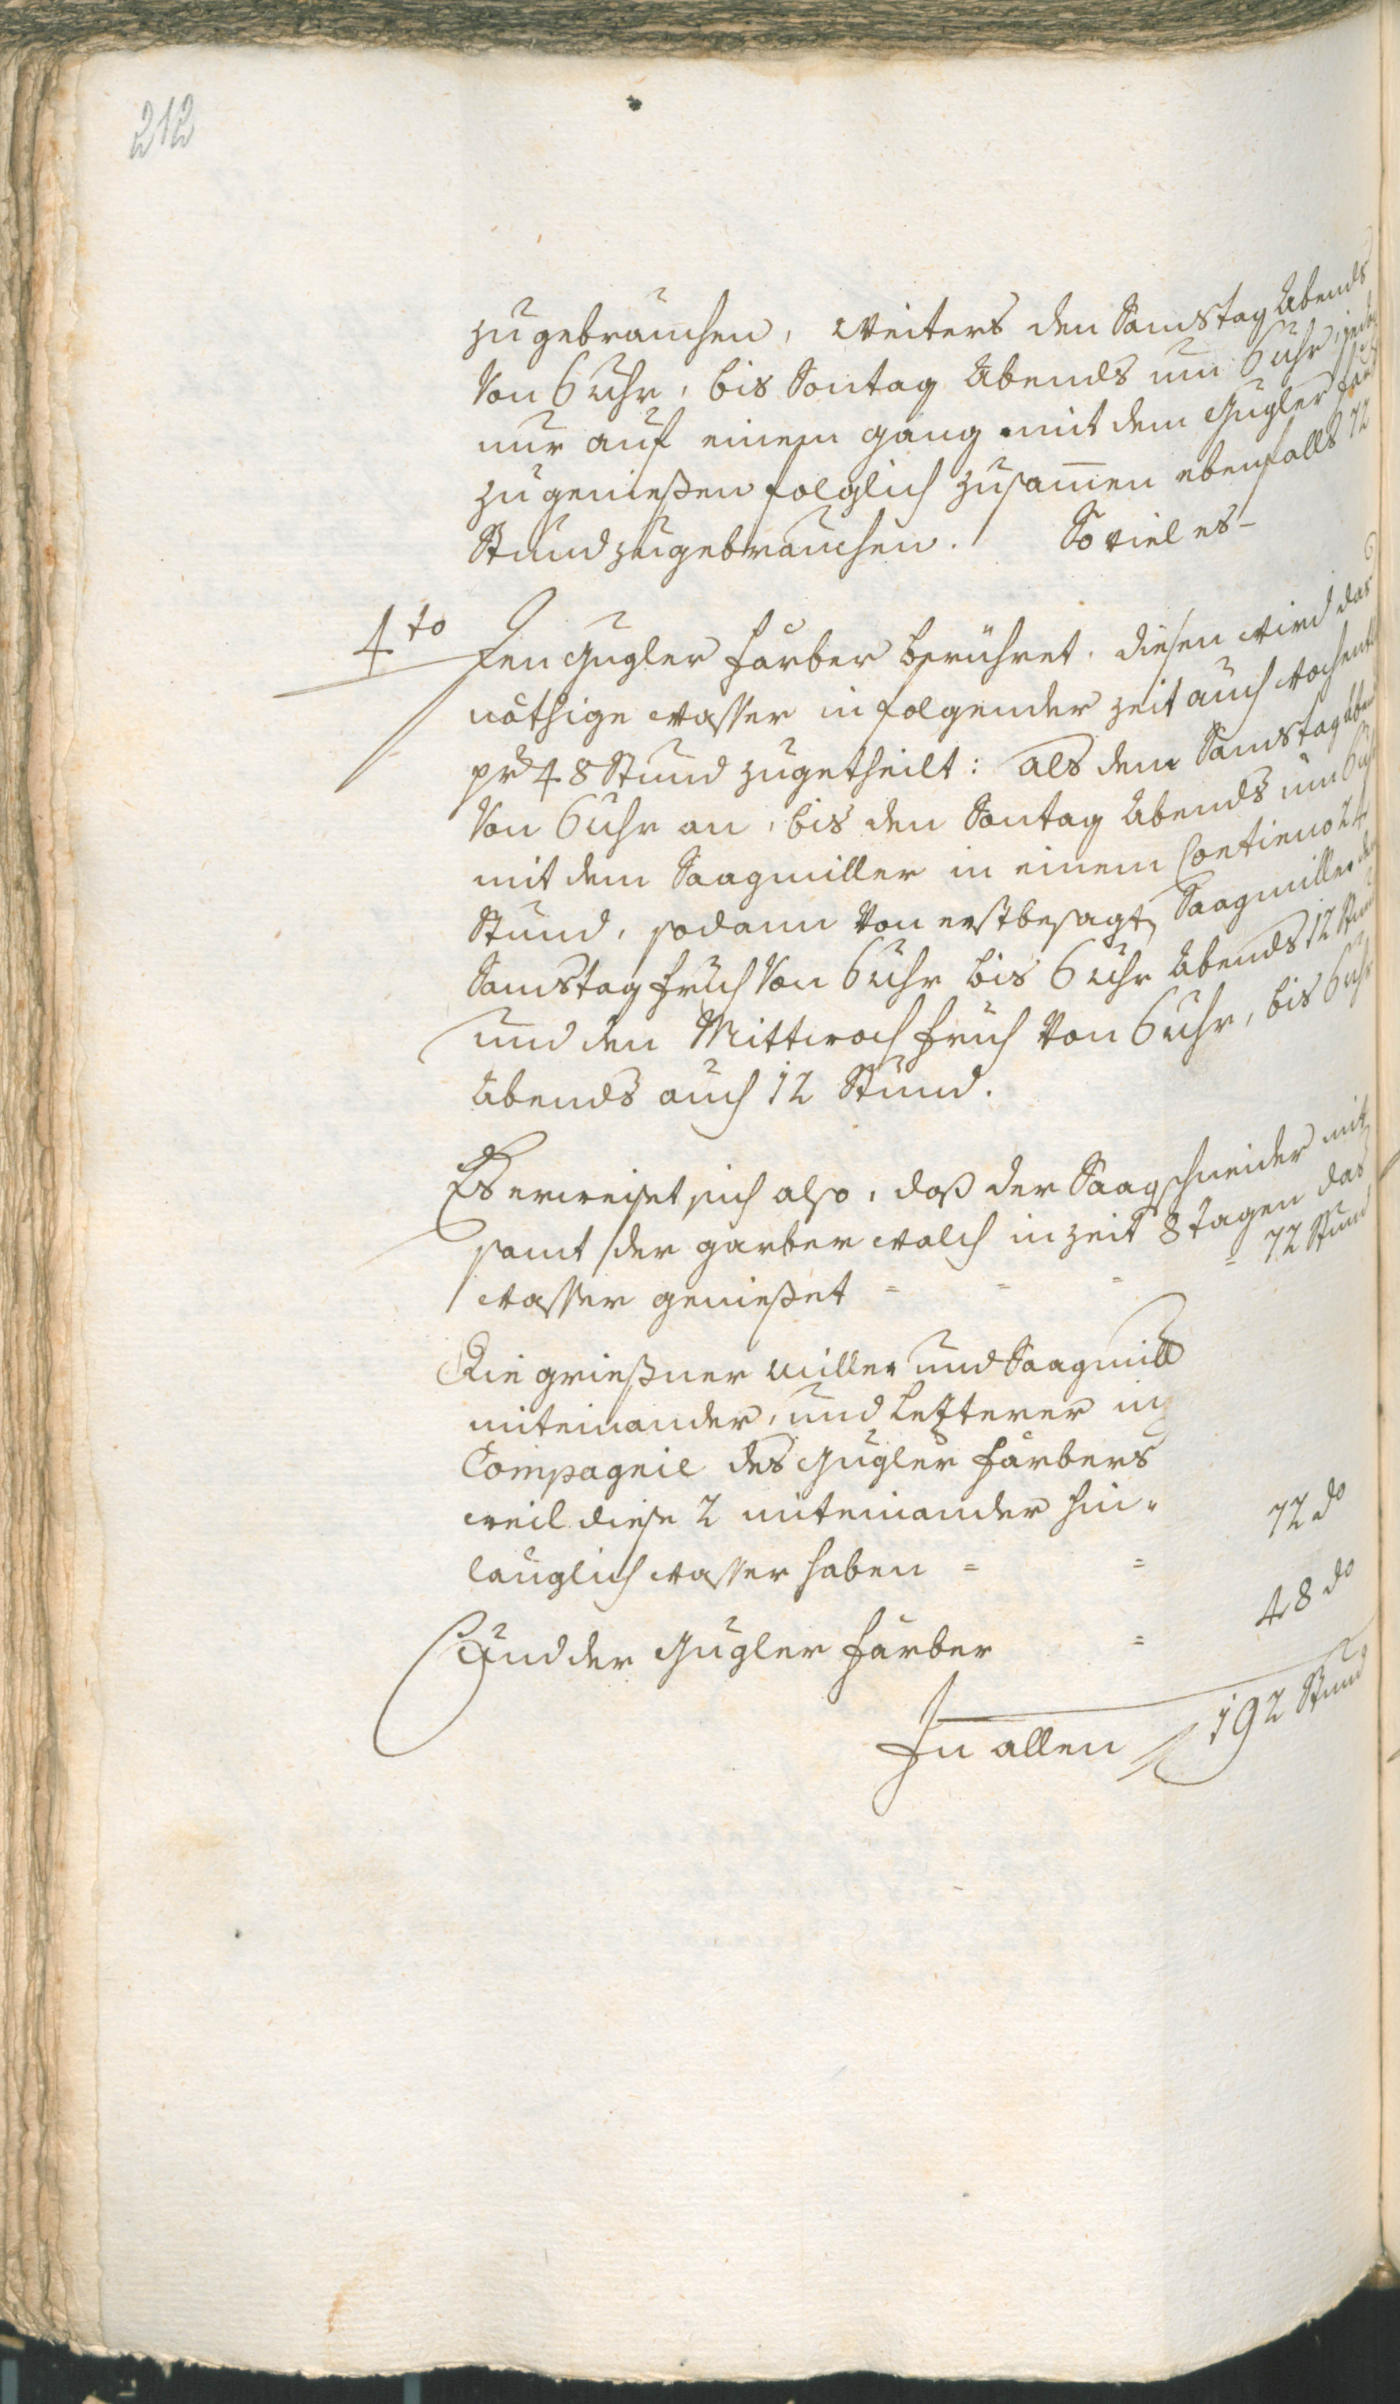 212
zugebrauchen, weiters den Samstag Abends
von 6 uhr, bis Sontag Abends um 6 uhr, jedoch
nur auf einem gang mit dem Gugler
zugenießen folglich zusam̅en ebenfalls 72
Stund zugebrauchen. So viel es-
4to Den Gugler färber berühret. diesen wird das
nöthige wasser in folgender zeit auch wochentl
pr 48 Stund zugetheilt: als dem Samstag Aben
von 6 uhr an, bis den Sontag Abends um 6 uh
mit dem Saagmiller in einem Contieno 24
Stund, sodann von erstbesagt Saagmiller den
Samstag früh von 6 uhr bis 6 uhr Abends 12 Stun
und den Mittwoch früh von 6 uhr, bis 6 uhr
Abends auch 12 Stund.
Es erweiset sich also, daß der Saagschneider mit
samt der garber walch in zeit 8 tagen das
wasser genießet = = = = 72 Stund
Die grießner miller und Saagmill
miteinander, und letzterer in
Compagnie des Gugler färbers
weil diese 2 miteinander hin-
länglich wasser haben = = 72 do
Und der Gugler färber = 48 do
In allen 192 Stund